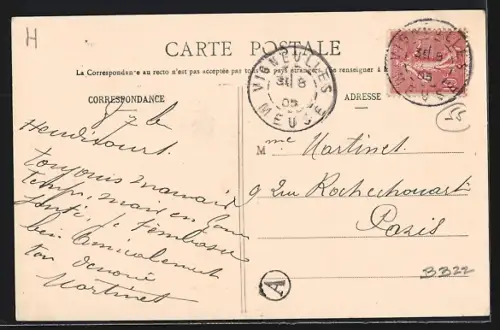 H
CARTE POSTALE
La Correspondance au recto n'est pas acceptée par tous
se renseigner à
CORRESPONDANCE
ADRESSE
VIGNEULLES
8
05
MEUSE
toujours mauvais
temps, mais en bonne
santé, je t'embrasse
bien amicalement
ton dévoué
Martinet
Mme Martinet
9 Rue Rochechouart
Paris
A
3322